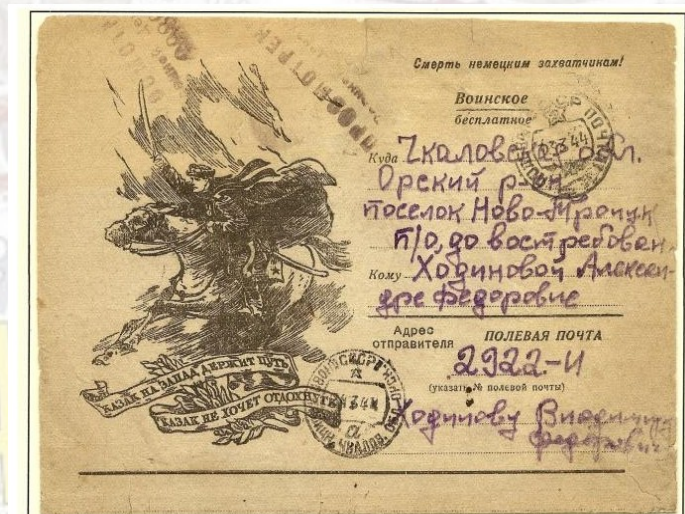 Смерть немецким захватчинам!
Воинское
бесплатное
Куда Чкаловская обл.
Орский р-он
поселок Ново-Троицк
п/о, до востребован.
Кому Ходиновой Алексан-
дре Федоровне
Адрес
отправителя
ПОЛЕВАЯ ПОЧТА
2922-И
(указать № полевой почты)
Ходинову Владимиру
Федорович
КАЗАК НА ЗАПАД ДЕРЖИТ ПУТЬ
КАЗАК НЕ ХОЧЕТ ОТДОХНУТЬ
ПРОСМОТРЕНО